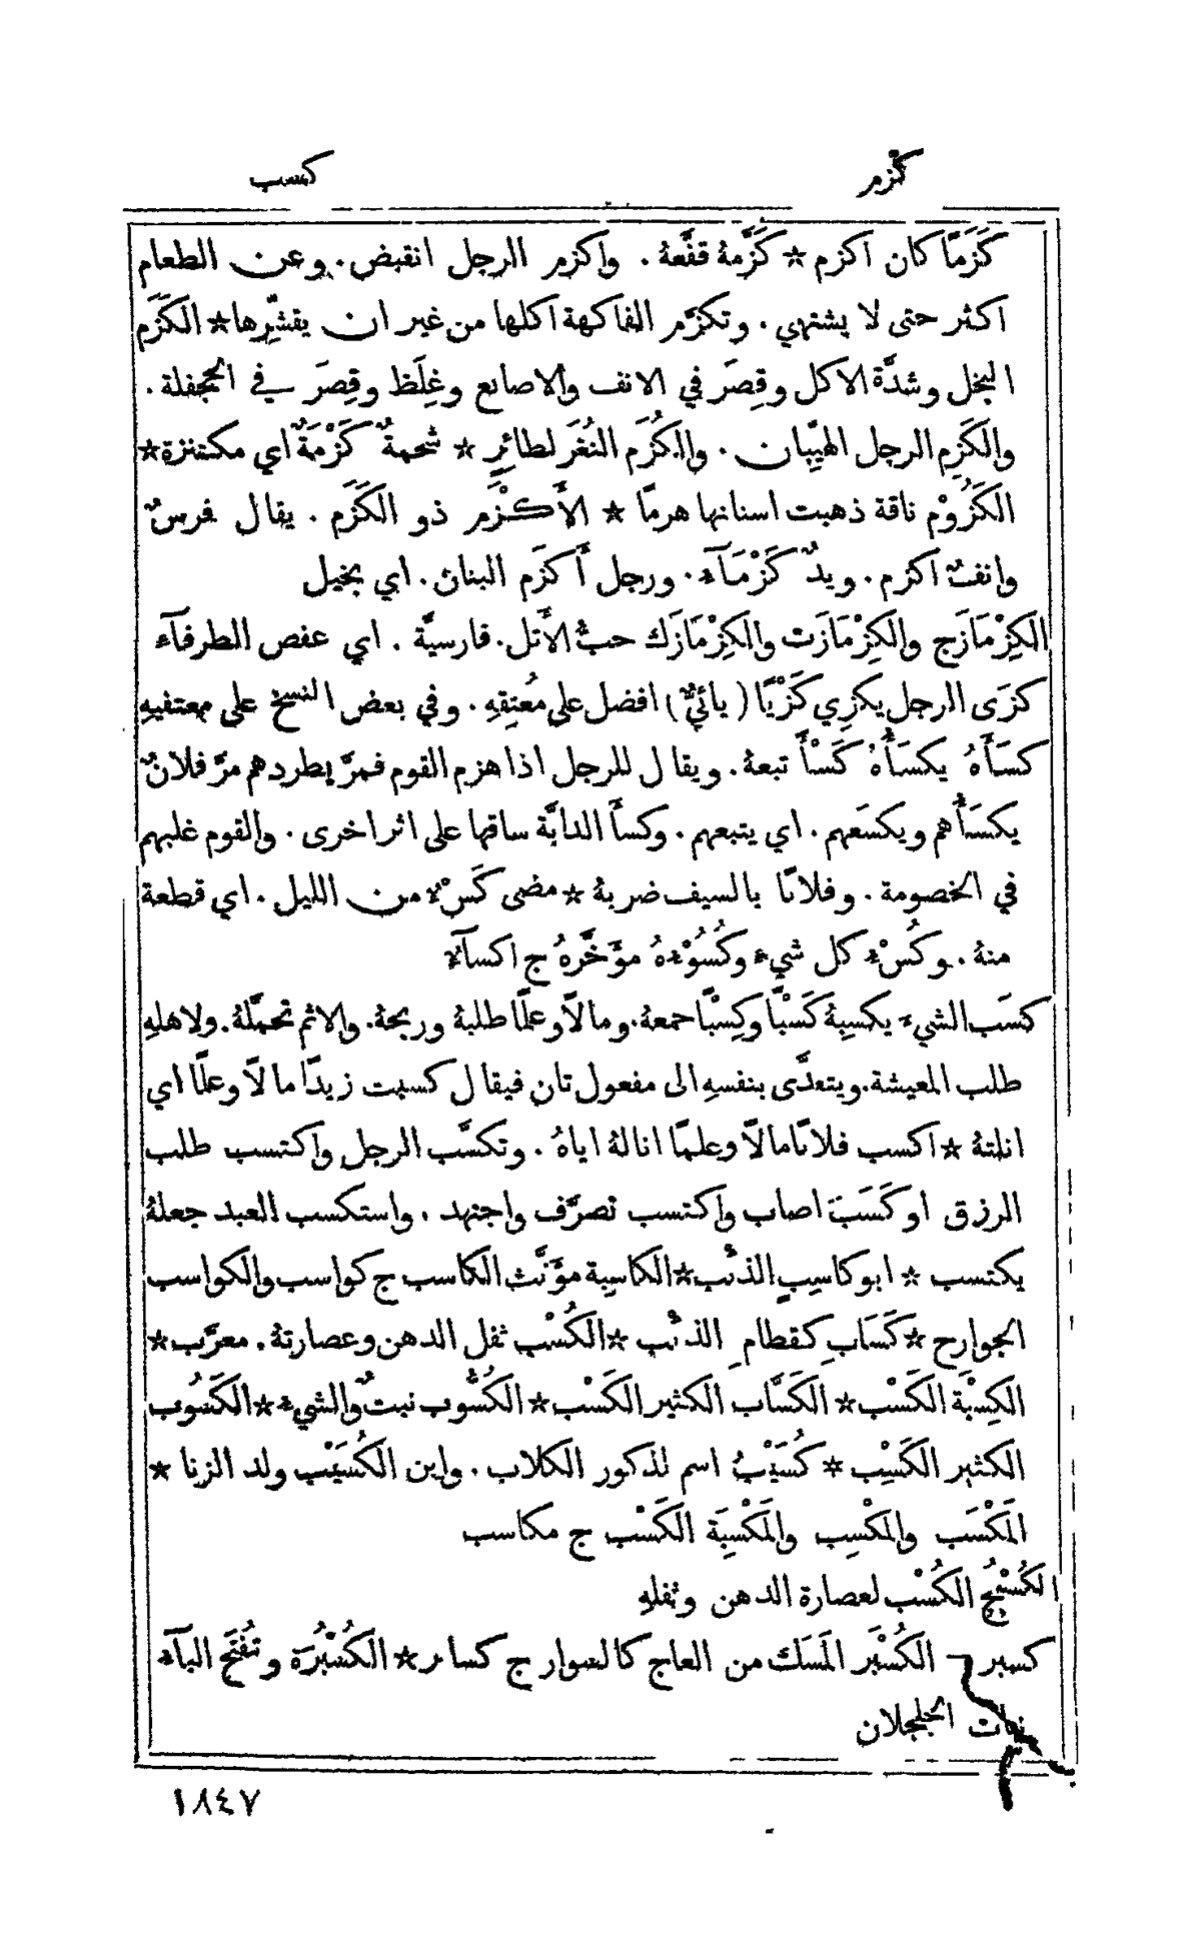 كزم
كسب
كَزَمًا كان اكزم * كَزَّمهُ قفَّعهُ . واكزم الرجل انقبض . وعن الطعام
اكثر حتى لا يشتهي . وتكزَّم الفاكهة اكلها من غير ان يقشّرها * الكَزَم
البخل وشدَّة الاكل وقِصَر في الانف والاصابع وغِلَظ وقِصَر في الجحفلة .
والكَزِم الرجل الهيِّبان . والكُزَم النُغَر لطائرٍ * شحمةٌ كَزْمَةٌ اي مكتنزة *
الكَزُوْم ناقة ذهبت اسنانها هرمًا * الأَكْزَم ذو الكَزَم . يقال فرسٌ
وانفٌ اكزم . ويدٌ كَزْمَآء . ورجل أَكزَم البنان . اي بخيل
الكِزْمَازَج والكِزْمَازَت والكِزْمَازَك حبُّ الأَثل . فارسيَّة . اي عفص الطرفآء
كزَى الرجل يكزِي كَزْيًا ( يائيٌّ ) افضل على مُعتِقِهِ . وفي بعض النسخ على معتفيهِ
كسَأَهُ يكسَأُهُ كَسْأً تبعهُ . ويقال للرجل اذا هزم القوم فمرَّ يطردهم مرَّ فلانٌ
يكسَأُهم ويكسَعهم . اي يتبعهم . وكسأَ الدابَّة ساقها على اثر اخرى . والقوم غلبهم
في الخصومة . وفلانًا بالسيف ضربهُ * مضى كَسْءٌ من الليل . اي قطعة
منهُ . وكُسْءُ كل شيءٍ وكُسُوْءهُ مؤَخَّرهُ ج اكسآءٌ
كسَب الشيءَ يكسِبهُ كَسْبًا وكِسْبًا جمعهُ . ومالًا وعلمًا طلبهُ وربحهُ . والاثم تحمَّلهُ . ولاهلهِ
طلب المعيشة . ويتعدَّى بنفسهِ الى مفعول ثان فيقال كسبت زيدًا مالًا وعلمًا اي
انلتهُ * اكسب فلانًا مالًا وعلمًا انالهُ اياهُ . وتكسَّب الرجل واكتسب طلب
الرزق او كَسَبَ اصاب واكتسب تصرَّف واجتهد . واستكسب العبد جعلهُ
يكتسب * ابو كاسِبٍ الذئب * الكاسِبة مؤَنَّث الكاسب ج كواسب والكواسب
الجوارح * كَسَابِ كقطامِ الذئب * الكُسْب ثفل الدهن وعصارتهُ . معرَّب *
الكِسْبَة الكَسْب * الكَسَّاب الكثير الكَسْب * الكَسُّوب نبتٌ والشيءُ * الكَسُوب
الكثير الكَسْب * كُسَيْبٌ اسم لذكور الكلاب . وابن الكُسَيْب ولد الزنا *
المَكْسَب والمَكْسِب والمَكْسِبَة الكَسْب ج مكاسب
الكُسْبُج الكُسْب لعصارة الدهن وثفلهِ
كسبر الكُسْبَر المَسَك من العاج كالسوار ج كسابر * الكُسْبُرَة وتُفتَح البآء
نبات الجلجلان
١٨٤٧